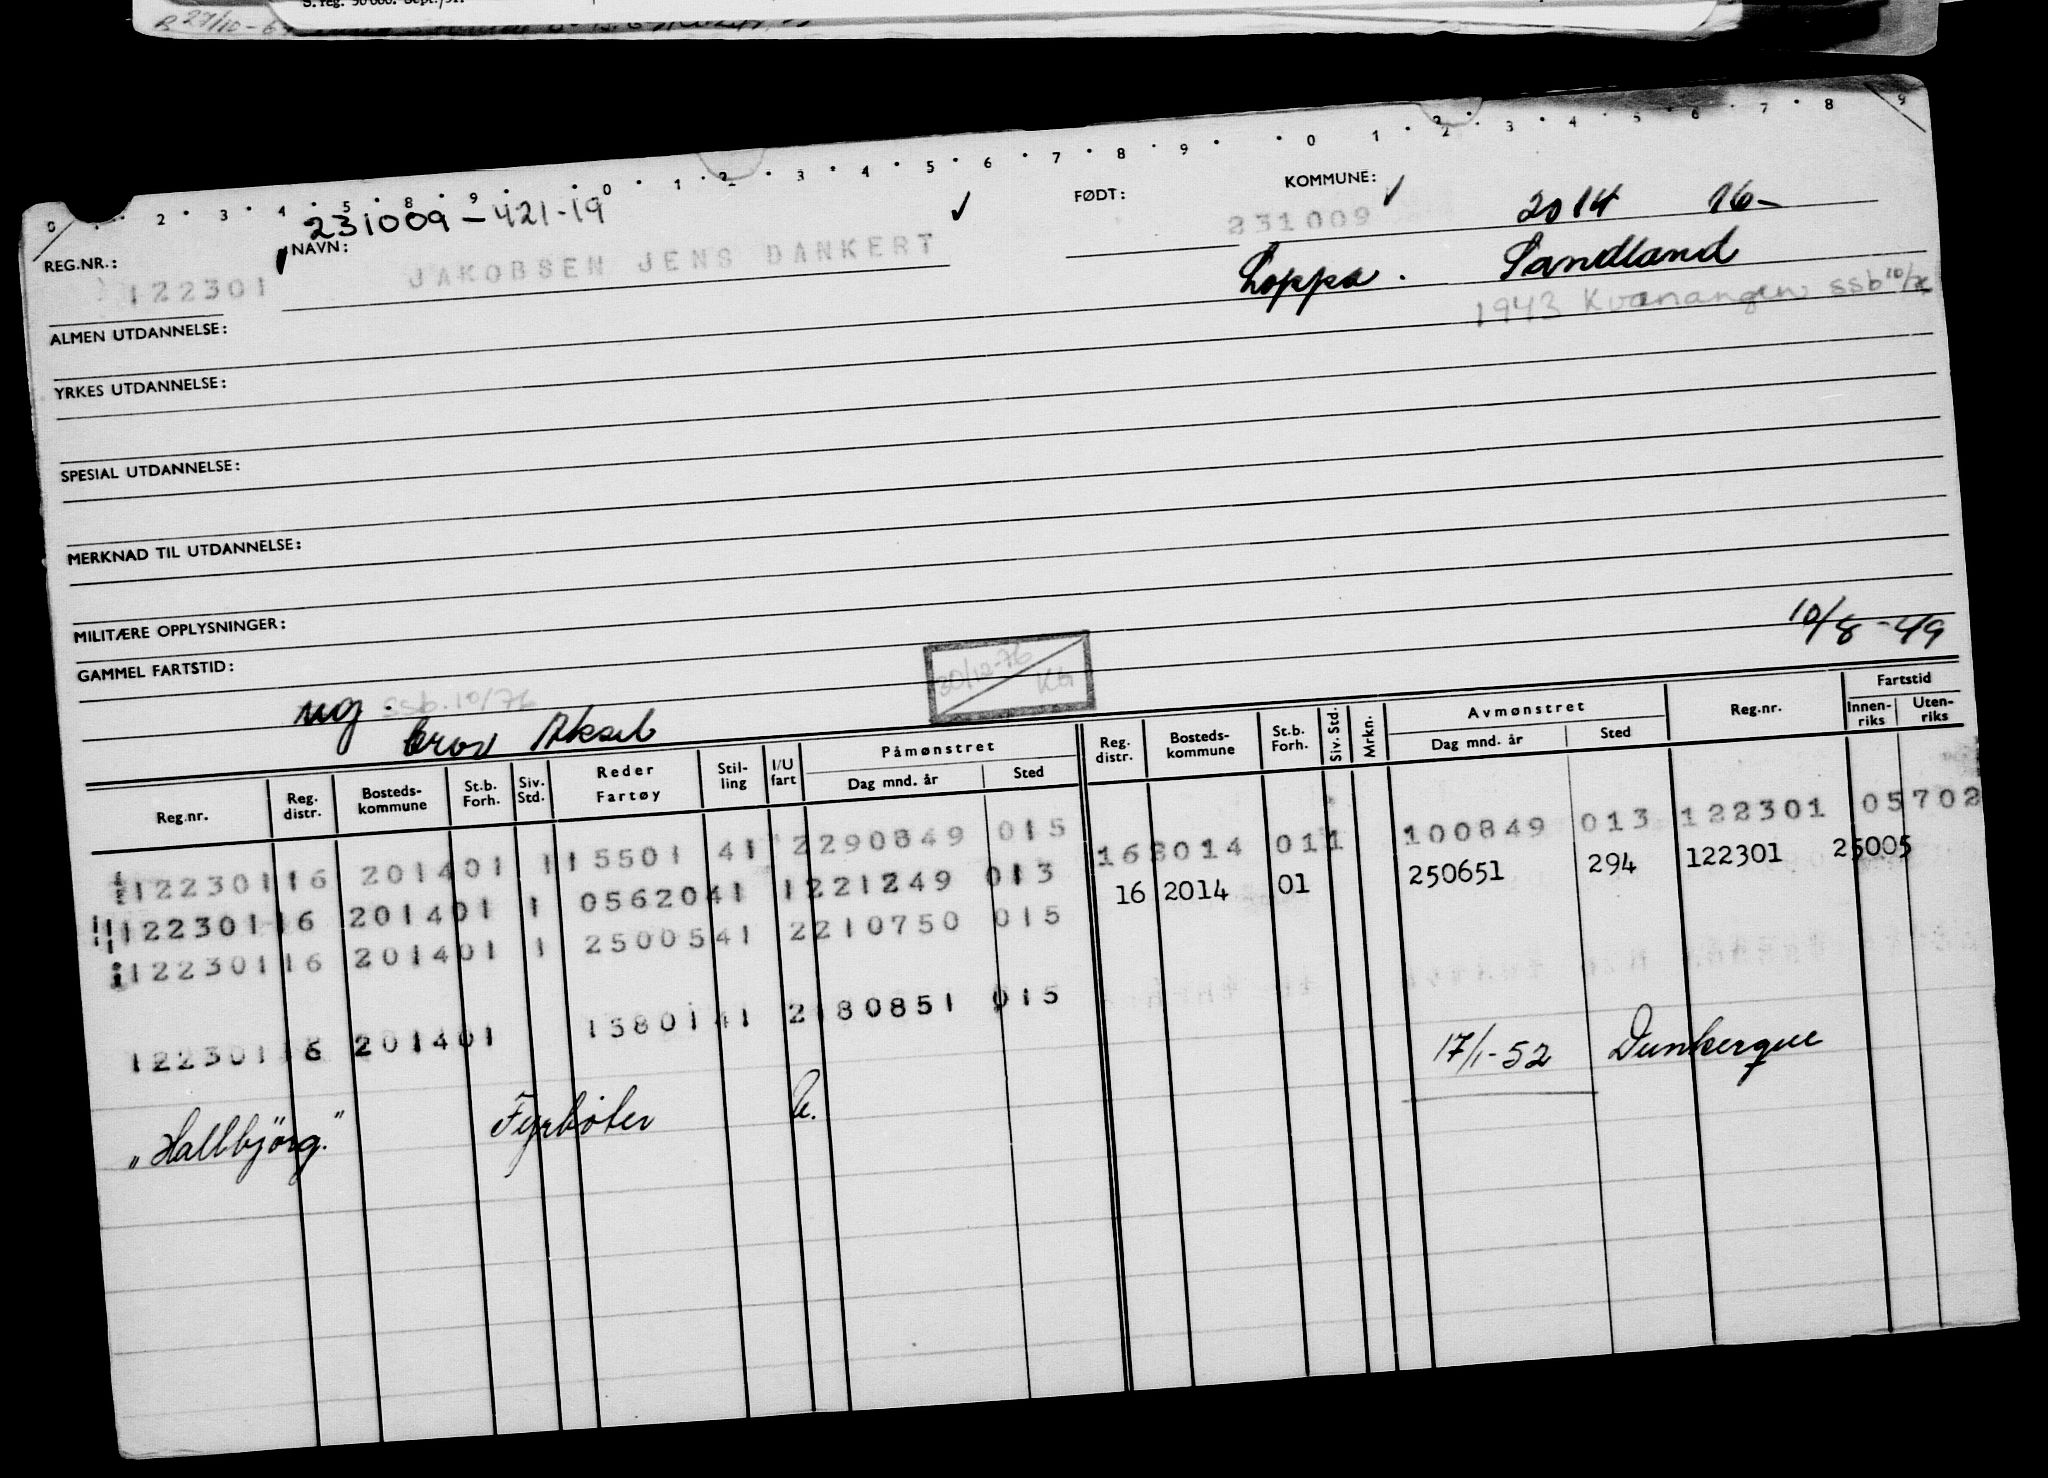 S. reg. 50 000. Sept./51.
0 2 3 4 5 8 9 0 1 2 3 4 5 6 7 8 9 0 1 2 3 4 5 6 7 8 9
231009-421-19
REG.NR.: NAVN: FØDT: KOMMUNE:
122301 JAKOBSEN JENS DANKERT 231009 2014 16-
Loppa. Sandland
1943 Kvænangen ssb 10/76
ALMEN UTDANNELSE:
YRKES UTDANNELSE:
SPESIAL UTDANNELSE:
MERKNAD TIL UTDANNELSE:
MILITÆRE OPPLYSNINGER:
GAMMEL FARTSTID:
10/8-49
30/12-76
ug. ssb. 10/76
Aksel
Reg.nr. Reg. distr. Bosteds-kommune St.b. Forh. Siv. Std. Reder Fartøy Stil-ling I/U fart Påmønstret Dag mnd. år Sted Reg. distr. Bosteds-kommune St.b. Forh. Siv. Std. Mrkn. Avmønstret Dag mnd. år Sted Reg.nr. Fartstid Innen-riks Uten-riks
122301 16 2014 01 1 15501 41 2 290849 015 16 2014 01 1 100849 013 122301 05702
122301 16 2014 01 1 05620 41 1 221249 013 16 2014 01 250651 294 122301 25005
122301 16 2014 01 1 25005 41 2 210750 015
122301 16 2014 01 13801 41 2 180851 015 17/1-52 Dunkerque
"Hallbjörg." Fyrbøter U.